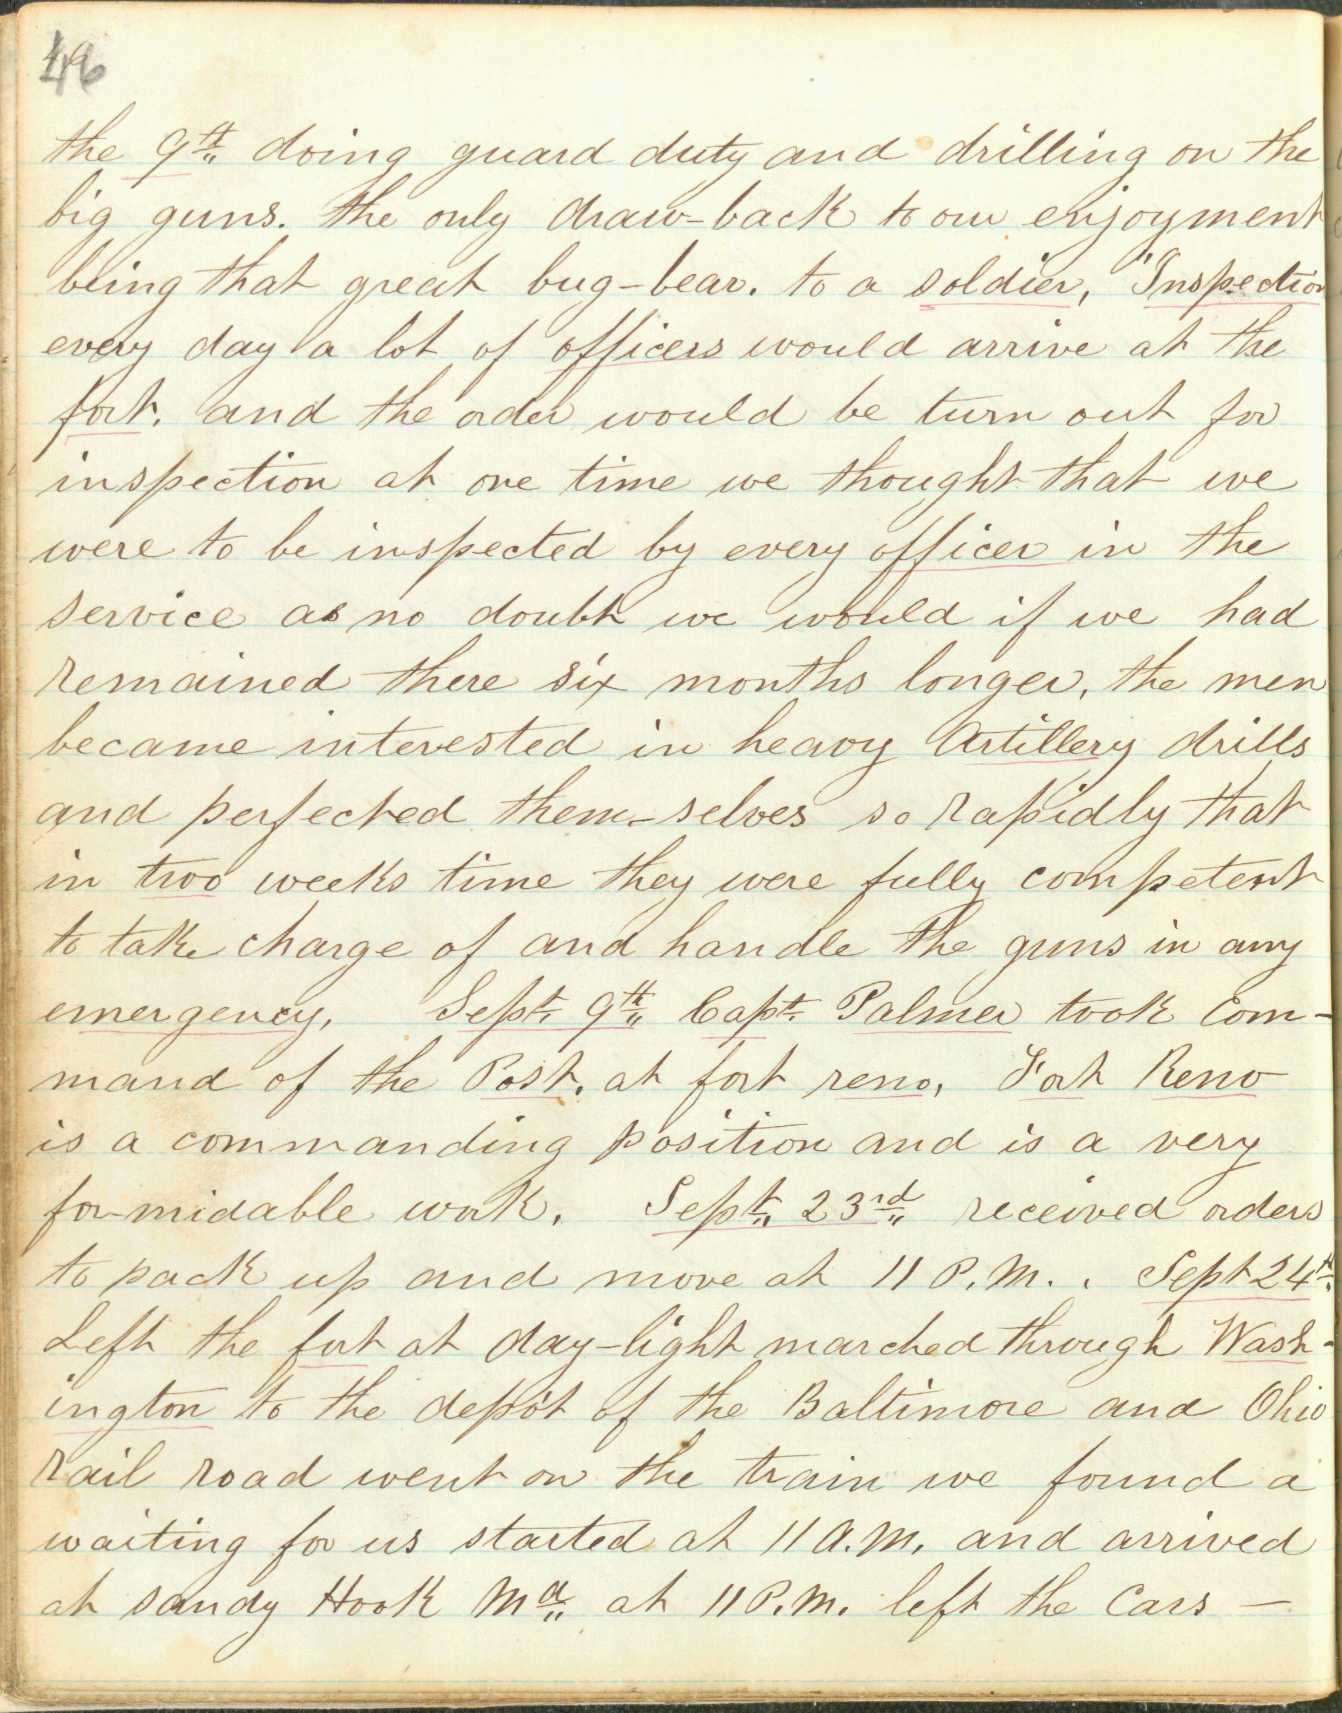 46
the 9th doing guard duty and drilling on the
big guns. the only draw-back to our enjoyment
being that great bug-bear. to a soldier, "Inspection
every day a lot of officers would arrive at the
fort. and the order would be turn out for
inspection at one time we thought that we
were to be inspected by every officer in the
service as no doubt we would if we had
remained there six months longer, the men
became interested in heavy Artillery drills
and perfected them-selves so rapidly that
in two weeks time they were fully competent
to take charge of and handle the guns in any
emergency, Sept. 9th Capt. Palmer took com-
mand of the Post. at fort reno, Fort Reno
is a commanding position and is a very
for-midable work. Sept. 23rd received orders
to pack up and move at 11 P.M. . Sept 24th
Left the fort at day-light marched through Wash-
ington to the depot of the Baltimore and Ohio
rail road went on the train we found a
waiting for us started at 11 A.M. and arrived
at sandy Hook Ma at 11 P.M. left the Cars —